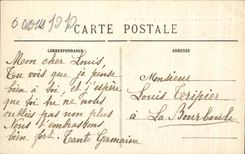 6 août 1912
CARTE POSTALE
CORRESPONDANCE
ADRESSE
Mon cher Louis,
Tu vois que je pense
bien à toi, et j'espère
que toi tu ne nous
oublies pas non plus
Nous t'embrassons
bien fort. Tante Germaine
Monsieur
Louis Teripier
à La Bourboule